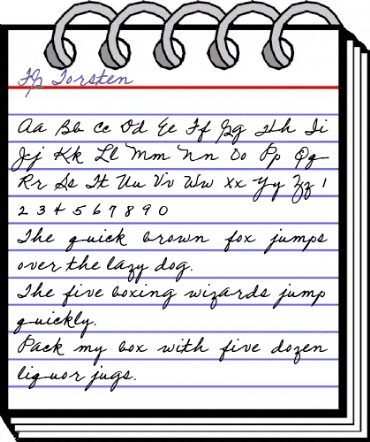 FG Torsten
Aa Bb Cc Dd Ee Ff Gg Hh Ii
Jj Kk Ll Mm Nn Oo Pp Qq
Rr Ss Tt Uu Vv Ww Xx Yy Zz 1
2 3 4 5 6 7 8 9 0
The quick brown fox jumps
over the lazy dog.
The five boxing wizards jump
quickly.
Pack my box with five dozen
liquor jugs.